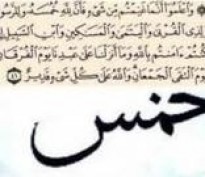 وَاعْلَمُوا أَنَّمَا غَنِمْتُم مِّن شَيْءٍ فَأَنَّ لِلَّهِ خُمُسَهُ وَلِلرَّسُو
لِذِي الْقُرْبَىٰ وَالْيَتَٰمَىٰ وَالْمَسَٰكِينِ وَابْنِ السَّبِيلِ
كُنتُمْ ءَامَنتُم بِاللَّهِ وَمَا أَنزَلْنَا عَلَىٰ عَبْدِنَا يَوْمَ الْفُرْقَانِ
يَوْمَ الْتَقَى الْجَمْعَانِ وَاللَّهُ عَلَىٰ كُلِّ شَيْءٍ قَدِيرٌ ٤١
خمس